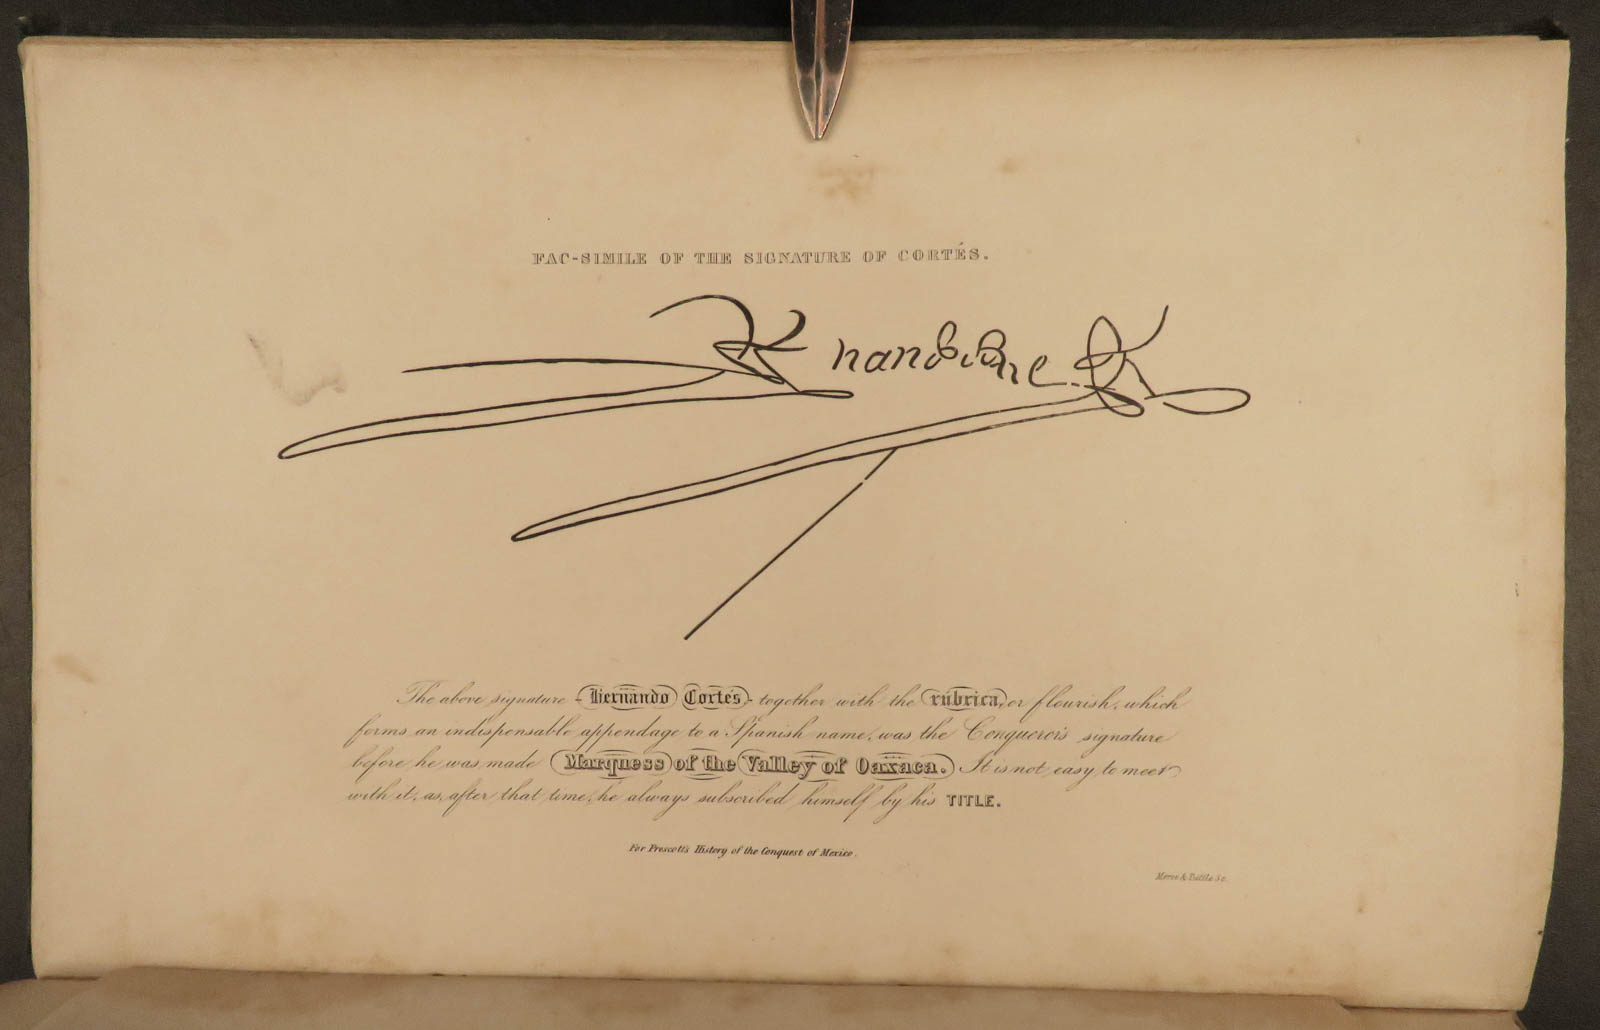 FAC-SIMILE OF THE SIGNATURE OF CORTÉS.
The above signature - Hernando Cortés, - together with the rúbrica, or flourish, which
forms an indispensable appendage to a Spanish name, was the Conqueror's signature
before he was made Marquess of the Valley of Oaxaca. It is not easy to meet
with it, as, after that time, he always subscribed himself by his TITLE.
For Prescott's History of the Conquest of Mexico.
& Tuttle Sc.